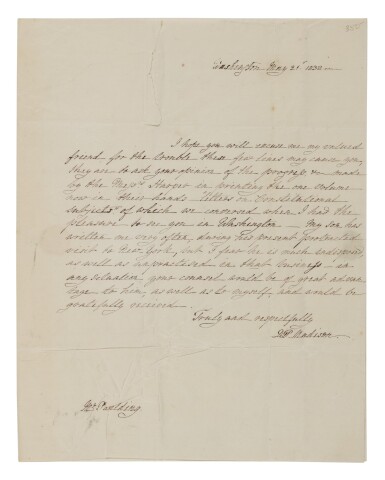 Washington May 21st 1838
I hope you will excuse me my esteemed
friend for the trouble these few lines may cause you,
they are to ask your opinion of the progress made
by the Messrs Harper in printing the one volume
now in their hands "letters on Constitutional
subjects" of which we conversed when I had the
pleasure to see you in Washington – My son has
written me very often, during his present protracted
visit to New York, but I fear he is much indisposed
as well as unpractised in that business – in
any situation your counsel would be of great advan
tage to him, as well as to myself, and would be
gratefully received.
Truly and respectfully
DP Madison
Mr Paulding